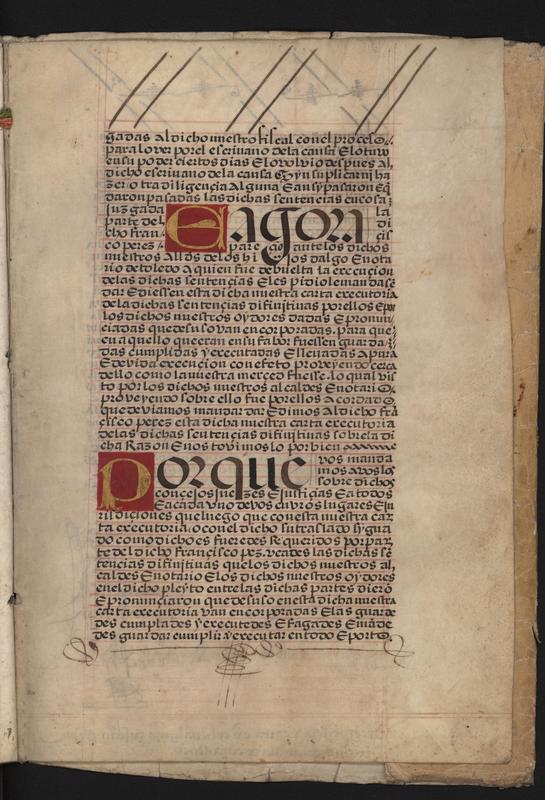 gadas Al dicho nuestro fiscal con el proceso
para lo ver por el escriuano dela causa El o tuvo
en su poder ciertos dias El o bolvio despues Al
dicho escriuano dela causa syn suplicar nj ha
zer otra diligencia Alguna E ansy pasaron E q
daron pasadas las dichas sentencias en cosa
juzgada
parte del
cho fran
co perez
E agora
la
di
cis
pareçio ante los dichos
nuestros Alldes delos hijos dalgo E nota
rio de toledo A quien fue debuelta la execucion
delas dichas sentencias E les pidio le mandase
dar E diessen esta dicha nuestra carta executoria
de la dichas sentencias difinjtiuas por ellos E por
los dichos nuestros oydores dadas E pronun
ciadas que de suso van encorporadas. para que
en aquello que eran en su fabor fuessen guarda
das cumplidas y executadas E lleuadas A pura
E devida execucion con efeto proveyendo cerca
dello como la nuestra merced fuesse. lo qual vis
to por los dichos nuestros alcaldes E notario
proveyendo sobre ello fue por ellos Acordado
que deviamos mandar dar E dimos Al dicho frā
cisco perez esta dicha nuestra carta executoria
delas dichas sentencias difinjtiuas sobre la di
cha Razon E nos tovimos lo por bien
Porque
vos manda
mos A vos los
sobre dichos
concejos juezes E justiçias E a todos
E a cada vno de vos en vr̄os lugares E ju
risdiciones que luego que con esta nuestra car
ta executoria o con el dicho su traslado sygna
do como dicho es fueredes Requeridos por par
te del dicho Francisco pez. veades las dichas sē
tencias difinjtiuas que los dichos nuestros al
caldes E notario E los dichos nuestros oydores
en el dicho pleyto entre las dichas partes dierō
E pronunciaron que de suso en esta dicha nuestra
carta executoria van encorporadas E las guarde
des cumplades y executedes E fagades E māde
des guardar cumplir y executar en todo E por to